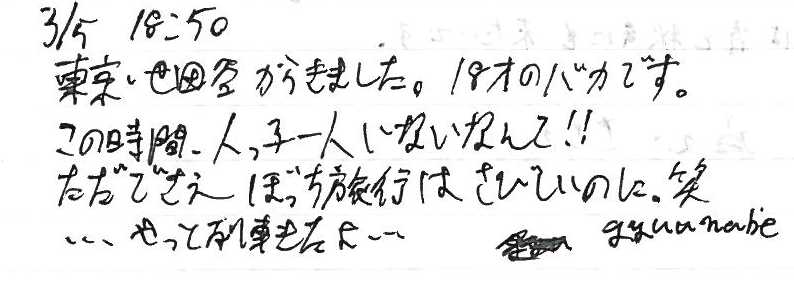 3/5 18:50
東京・世田谷からきました。18才のバカです。
この時間、人っ子一人いないなんて!!
ただでさえぼっち旅行はさびしいのに。笑
... やっと列車きたよ...
gyuunabe